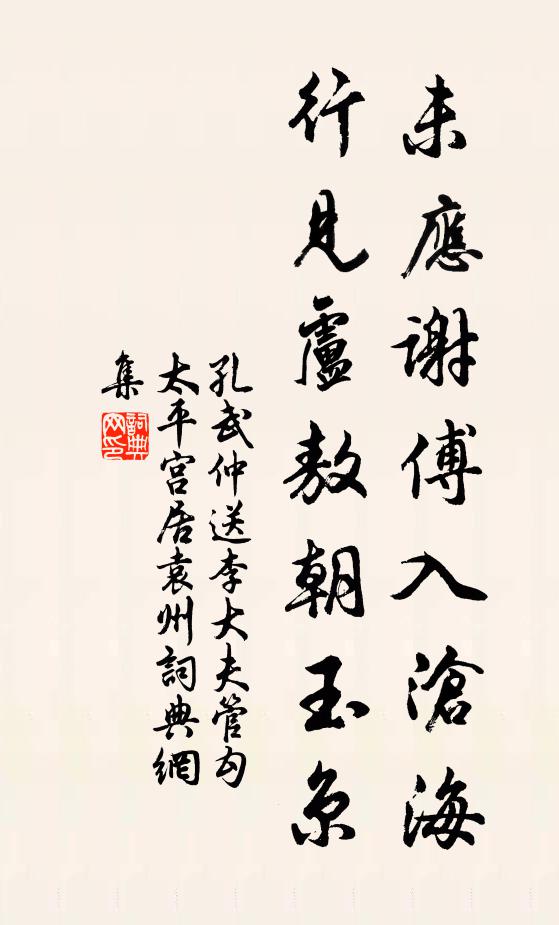 未應謝傅入滄海
行見盧敖朝玉京
孔武仲送李大夫管勾
太平宮居袁州詞典網
集
詞典
网印